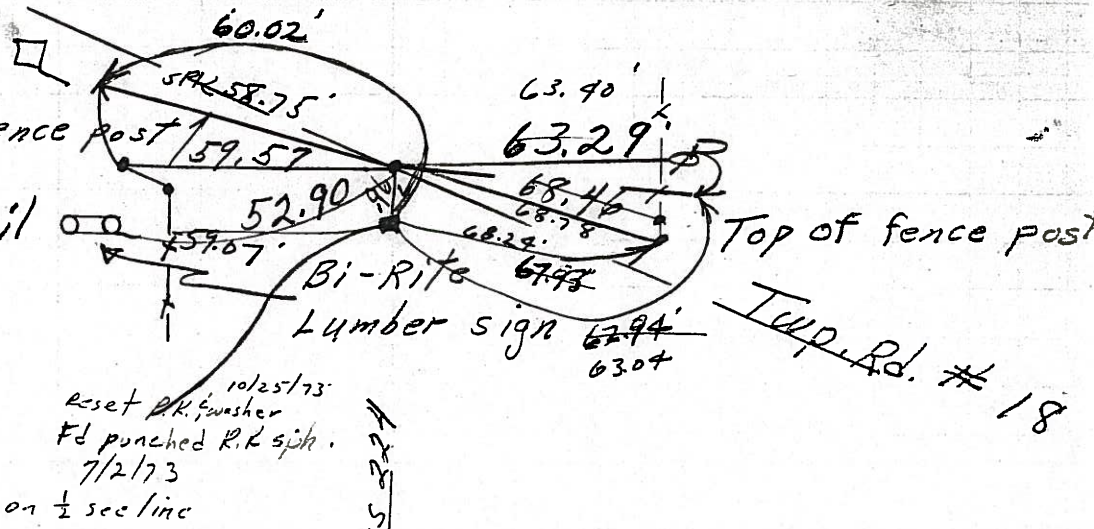 60.02'
SPK 58.75'
63.40'
ence post
59.57
63.29'
52.90
.90
68.46
68.78
il
59.07'
68.24'
67.93
Top of fence post
Bi-Rite
Lumber sign
62.94'
63.04
Twp. Rd. # 18
10/25/73
Reset P.K. & washer
Fd punched R.R. spk.
7/2/73
on ½ sec line